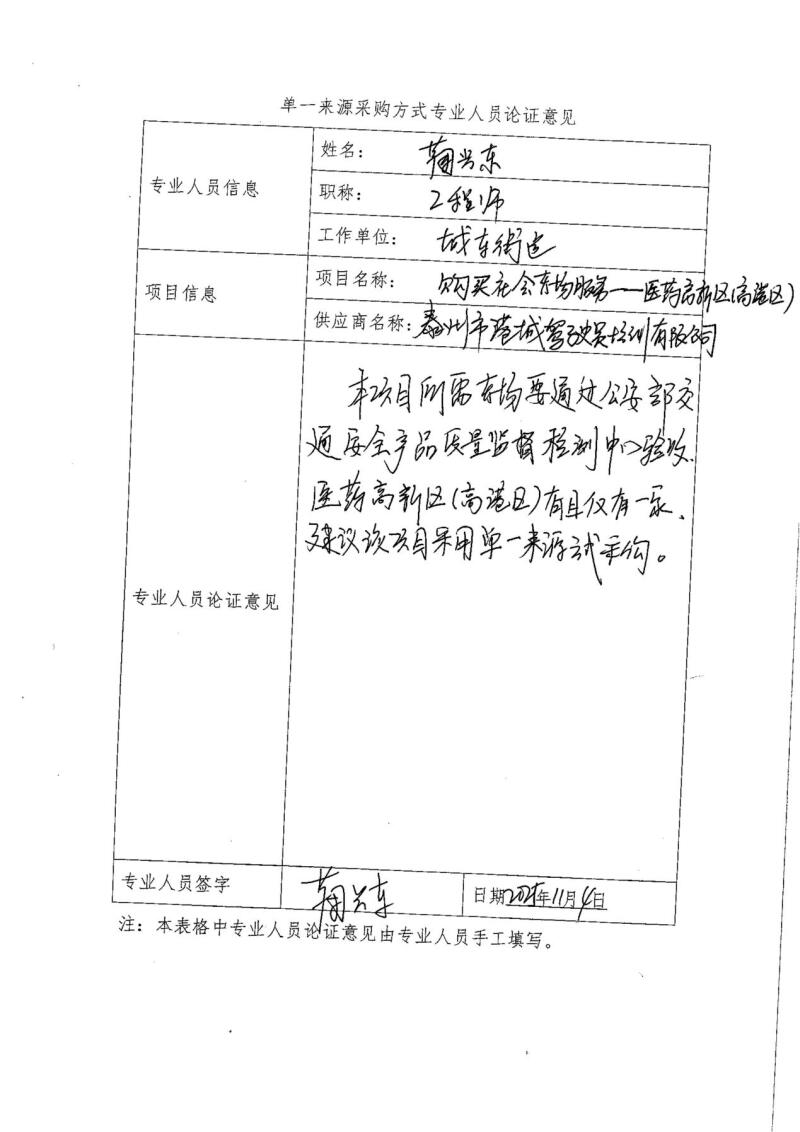 单一来源采购方式专业人员论证意见
专业人员信息
姓名: 鞠兴东
职称: 工程师
工作单位: 城东街道
项目信息
项目名称: 购买社会考场服务——医药高新区(高港区)
供应商名称: 泰州市港城驾驶员培训有限公司
专业人员论证意见
本项目所需考场要通过公安部交
通安全产品质量监督检测中心验收、
医药高新区(高港区)有且仅有一家、
建议该项目采用单一来源方式采购。
专业人员签字
鞠兴东
日期 年11月4日
注: 本表格中专业人员论证意见由专业人员手工填写。